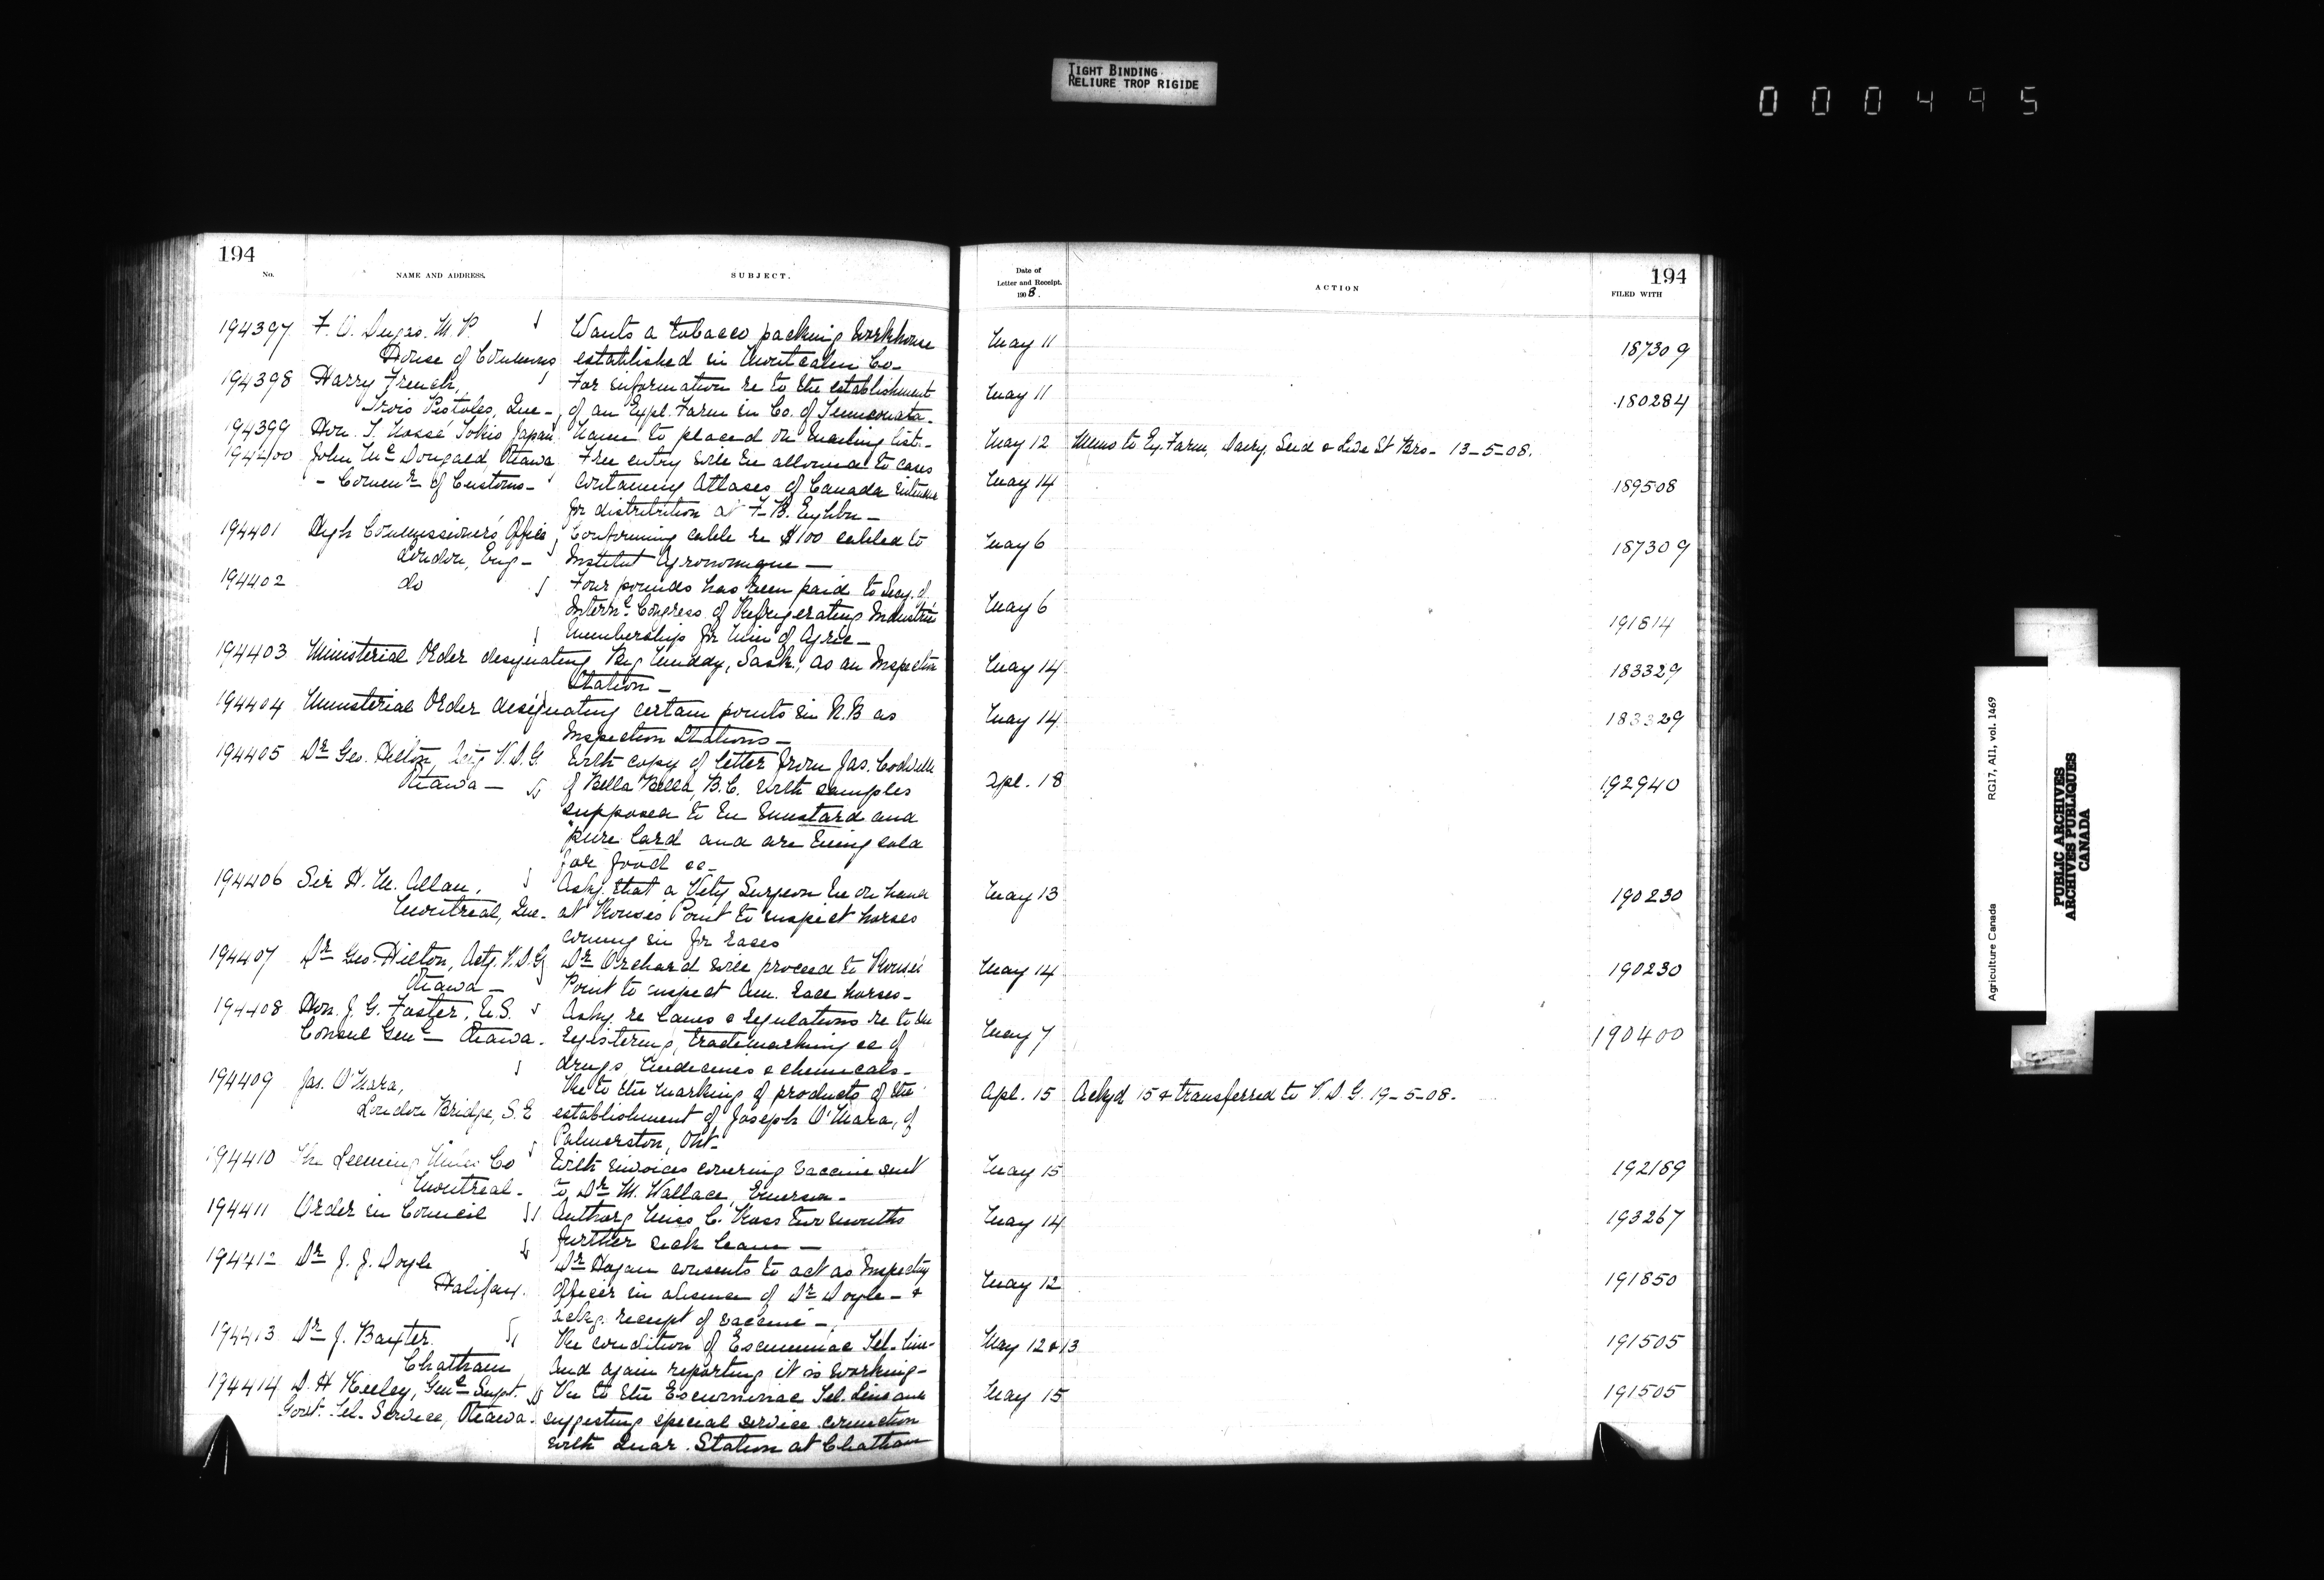 TIGHT BINDING
RELIURE TROP RIGIDE
000495
194
No.
NAME AND ADDRESS.
SUBJECT.
194397 F. O. Dugas. M. P. Wants a tobacco packing workhouse
House of Commons established in Montcalm Co-
194398 Harry French, For information re to the establishment
Trois Pistoles, Que- of an Expl. Farm in Co. of Temiscouata.
194399 Hon. T. Nossé Tokio Japan. Name to placed on mailing list.-
194400 John Mc Dougald, Ottawa Free entry will be allowed to cases
- Commr of Customs- containing Atlases of Canada
for distribution at F-B. Exhbn-
194401 High Commissioner's Office, Confirming cable re $100 cabled to
London, Eng- Institut Agronomique -
194402 do Four pounds has been paid to Secy. of
Internl. Congress of Refrigerating Industries
Membership for Min of Agric-
194403 Ministerial Order designating Big Muddy, Sask., as an Inspection
Station-
194404 Ministerial Order designating certain points in N.B as
Inspection Stations-
194405 Dr Geo. Hilton, V.D.G. With copy of letter from Jas.
Ottawa - of Bella Bella, B.C. with samples
supposed to be mustard and
"pure lard and are being sold
for food &c-
194406 Sir H. M. Allan, Askg. that a Vety Surgeon be on hand
Montreal, Que- at Rouses Point to inspect horses
coming in for races
194407 Dr Geo. Hilton, Actg. V.D.G Dr Orchard will proceed to Rouses
Ottawa - Point to inspect Am. race horses-
194408 Hon. J. G. Foster, U.S. Askg re laws & regulations re to the
Consul Genl- Ottawa. registering, trademarking &c of
drugs, medicines & chemicals-
194409 Jas. O'Mara, Re to the marking of products of the
London Bridge, S.E establishment of Joseph O'Mara, of
Palmerston, Ont-
194410 The Leeming Miles Co With invoices covering vaccine sent
Montreal- to Dr M. Wallace, Emerson-
194411 Order in Council Authorg Miss C. Ross two months
further sick leave -
194412 Dr J. J. Doyle Dr Hogan consents to act as Inspectg
Halifax. Officer in absence of Dr Doyle- &
ackg. receipt of vaccine -
194413 Dr J. Baxter. Re condition of Escuminac Tel- line-
Chatham and again reporting it is working-
194414 D. H Keeley, Genl Supt. Re to the Escuminac Tel. Line and
Govt. Tel. Service, Ottawa. suggesting special service connection
with Quar. Station at Chatham
Date of
Letter and Receipt.
1908.
ACTION
194
FILED WITH
May 11 187309
May 11 180284
May 12 Memo to Ex. Farm, Dairy, Seed & Live St Brs- 13-5-08.
May 14 189508
May 6 187309
May 6 191814
May 14 183329
May 14 183329
Apl. 18 192940
May 13 190230
May 14 190230
May 7 190400
Apl. 15 Ackgd 15 & transferred to V. D. G. 19-5-08.
May 15 192189
May 14 193267
May 12 191850
May 12 & 13 191505
May 15 191505
Agriculture Canada
RG17, AI1, vol. 1469
PUBLIC ARCHIVES
ARCHIVES PUBLIQUES
CANADA